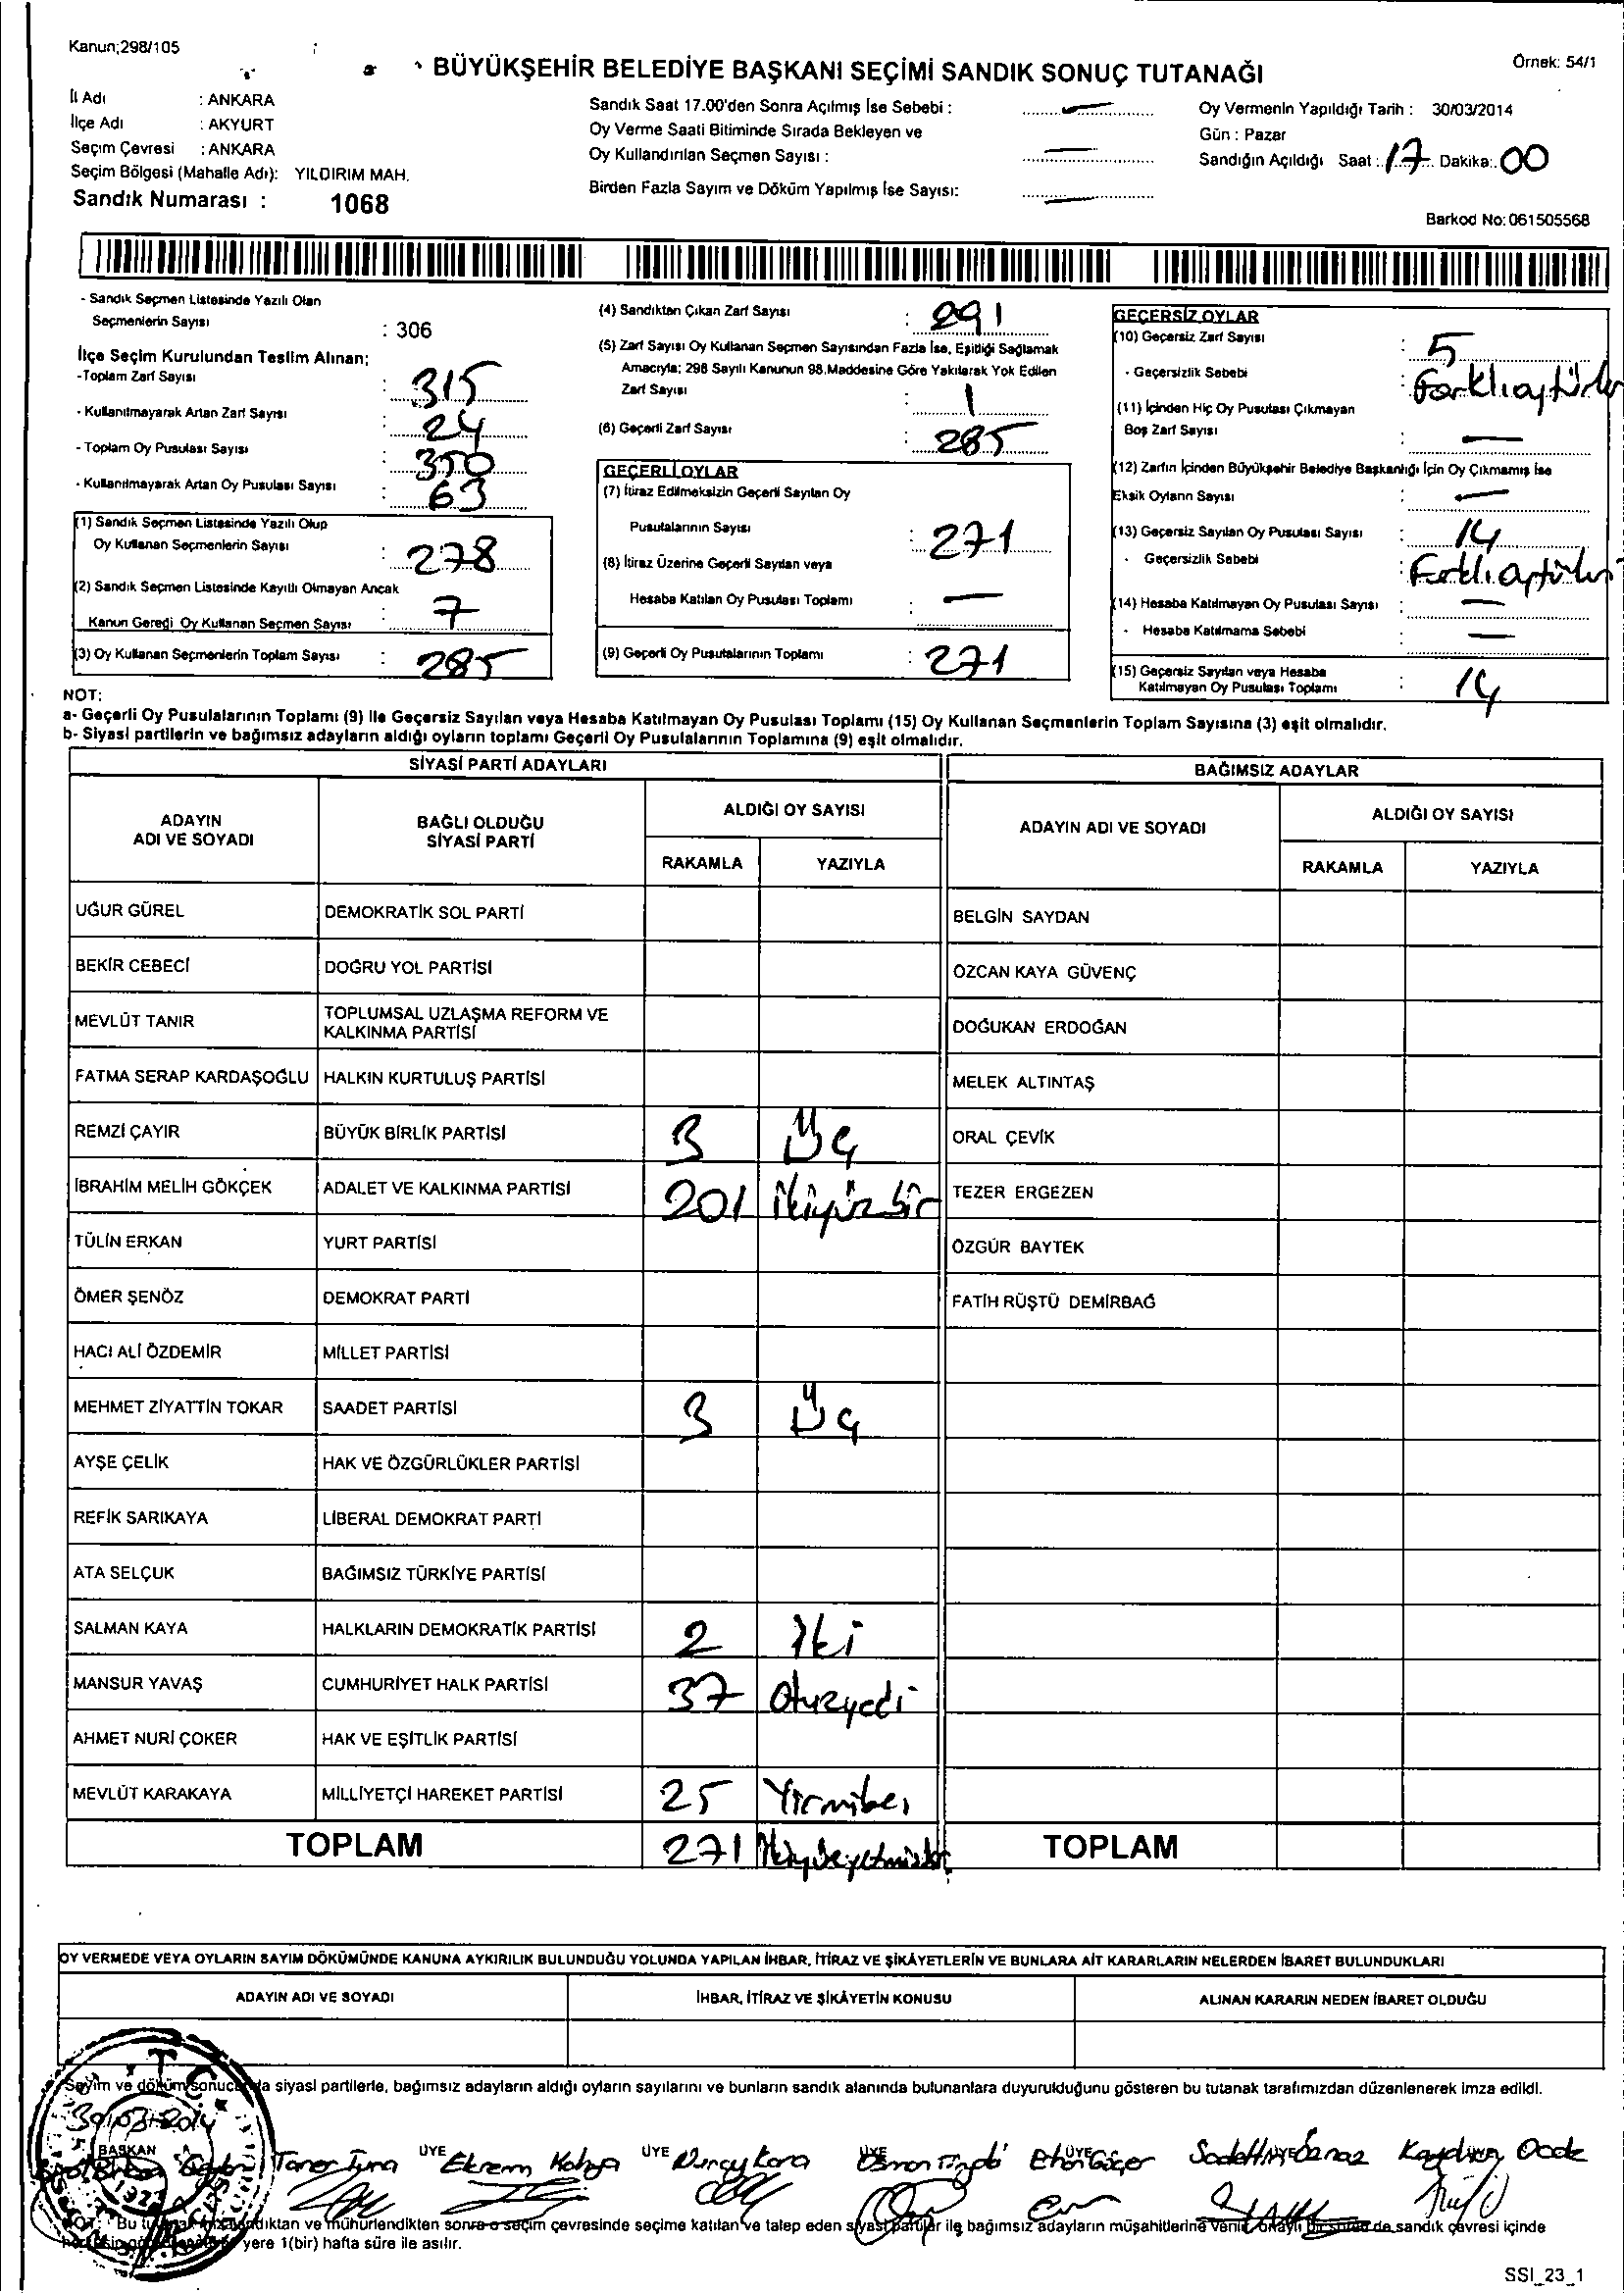 Kanun;298/105
BÜYÜKŞEHİR BELEDİYE BAŞKANI SEÇİMİ SANDIK SONUÇ TUTANAĞI
Örnek: 54/1
İl Adı : ANKARA
İlçe Adı : AKYURT
Seçim Çevresi : ANKARA
Seçim Bölgesi (Mahalle Adı): YILDIRIM MAH.
Sandık Numarası : 1068
Sandık Saat 17.00'den Sonra Açılmış İse Sebebi : —
Oy Verme Saati Bitiminde Sırada Bekleyen ve
Oy Kullandırılan Seçmen Sayısı : —
Birden Fazla Sayım ve Döküm Yapılmış İse Sayısı: —
Oy Vermenin Yapıldığı Tarih : 30/03/2014
Gün : Pazar
Sandığın Açıldığı Saat : 17 Dakika: 00
Barkod No: 061505568
- Sandık Seçmen Listesinde Yazılı Olan
Seçmenlerin Sayısı : 306
İlçe Seçim Kurulundan Teslim Alınan;
-Toplam Zarf Sayısı : 315
- Kullanılmayarak Artan Zarf Sayısı : 24
- Toplam Oy Pusulası Sayısı : 350
- Kullanılmayarak Artan Oy Pusulası Sayısı : 63
(1) Sandık Seçmen Listesinde Yazılı Olup
Oy Kullanan Seçmenlerin Sayısı : 278
(2) Sandık Seçmen Listesinde Kayıtlı Olmayan Ancak
Kanun Gereği Oy Kullanan Seçmen Sayısı : 7
(3) Oy Kullanan Seçmenlerin Toplam Sayısı : 285
(4) Sandıktan Çıkan Zarf Sayısı : 291
(5) Zarf Sayısı Oy Kullanan Seçmen Sayısından Fazla İse, Eşitliği Sağlamak
Amacıyla; 298 Sayılı Kanunun 98.Maddesine Göre Yakılarak Yok Edilen
Zarf Sayısı : 1
(6) Geçerli Zarf Sayısı : 285
GEÇERLİ OYLAR
(7) İtiraz Edilmeksizin Geçerli Sayılan Oy
Pusulalarının Sayısı : 271
(8) İtiraz Üzerine Geçerli Sayılan veya
Hesaba Katılan Oy Pusulası Toplamı : —
(9) Geçerli Oy Pusulalarının Toplamı : 271
GEÇERSİZ OYLAR
(10) Geçersiz Zarf Sayısı : 5
- Geçersizlik Sebebi :
(11) İçinden Hiç Oy Pusulası Çıkmayan
Boş Zarf Sayısı : —
(12) Zarfın İçinden Büyükşehir Belediye Başkanlığı İçin Oy Çıkmamış İse
Eksik Oyların Sayısı : —
(13) Geçersiz Sayılan Oy Pusulası Sayısı : 14
- Geçersizlik Sebebi :
(14) Hesaba Katılmayan Oy Pusulası Sayısı : —
- Hesaba Katılmama Sebebi : —
(15) Geçersiz Sayılan veya Hesaba
Katılmayan Oy Pusulası Toplamı : 14
NOT:
a- Geçerli Oy Pusulalarının Toplamı (9) ile Geçersiz Sayılan veya Hesaba Katılmayan Oy Pusulası Toplamı (15) Oy Kullanan Seçmenlerin Toplam Sayısına (3) eşit olmalıdır.
b- Siyasi partilerin ve bağımsız adayların aldığı oyların toplamı Geçerli Oy Pusulalarının Toplamına (9) eşit olmalıdır.
SİYASİ PARTİ ADAYLARI BAĞIMSIZ ADAYLAR
ADAYIN ADI VE SOYADI BAĞLI OLDUĞU SİYASİ PARTİ ALDIĞI OY SAYISI ADAYIN ADI VE SOYADI ALDIĞI OY SAYISI
RAKAMLA YAZIYLA RAKAMLA YAZIYLA
UĞUR GÜREL DEMOKRATİK SOL PARTİ BELGİN SAYDAN
BEKİR CEBECİ DOĞRU YOL PARTİSİ ÖZCAN KAYA GÜVENÇ
MEVLÜT TANIR TOPLUMSAL UZLAŞMA REFORM VE KALKINMA PARTİSİ DOĞUKAN ERDOĞAN
FATMA SERAP KARDAŞOĞLU HALKIN KURTULUŞ PARTİSİ MELEK ALTINTAŞ
REMZİ ÇAYIR BÜYÜK BİRLİK PARTİSİ 3 Üç ORAL ÇEVİK
İBRAHİM MELİH GÖKÇEK ADALET VE KALKINMA PARTİSİ 201 ikiyüzbir TEZER ERGEZEN
TÜLİN ERKAN YURT PARTİSİ ÖZGÜR BAYTEK
ÖMER ŞENÖZ DEMOKRAT PARTİ FATİH RÜŞTÜ DEMİRBAĞ
HACI ALİ ÖZDEMİR MİLLET PARTİSİ
MEHMET ZİYATTİN TOKAR SAADET PARTİSİ 3 Üç
AYŞE ÇELİK HAK VE ÖZGÜRLÜKLER PARTİSİ
REFİK SARIKAYA LİBERAL DEMOKRAT PARTİ
ATA SELÇUK BAĞIMSIZ TÜRKİYE PARTİSİ
SALMAN KAYA HALKLARIN DEMOKRATİK PARTİSİ 2 iki
MANSUR YAVAŞ CUMHURİYET HALK PARTİSİ 37 Otuzyedi
AHMET NURİ ÇOKER HAK VE EŞİTLİK PARTİSİ
MEVLÜT KARAKAYA MİLLİYETÇİ HAREKET PARTİSİ 25 Yirmibeş
TOPLAM 271 TOPLAM
OY VERMEDE VEYA OYLARIN SAYIM DÖKÜMÜNDE KANUNA AYKIRILIK BULUNDUĞU YOLUNDA YAPILAN İHBAR, İTİRAZ VE ŞİKÂYETLERİN VE BUNLARA AİT KARARLARIN NELERDEN İBARET BULUNDUKLARI
ADAYIN ADI VE SOYADI İHBAR, İTİRAZ VE ŞİKÂYETİN KONUSU ALINAN KARARIN NEDEN İBARET OLDUĞU
T.C.
Sayım ve döküm sonucunda siyasi partilerle, bağımsız adayların aldığı oyların sayılarını ve bunların sandık alanında bulunanlara duyurulduğunu gösteren bu tutanak tarafımızdan düzenlenerek imza edildi.
30/03/2014
BAŞKAN ÜYE ÜYE ÜYE ÜYE ÜYE
Taner Tuna Ekrem Nuray Kara Osman
siyasi partiler ile bağımsız adayların müşahitlerine
Bu diktan ve mühürlendikten sonra o seçim çevresinde seçime katılan ve talep eden de sandık çevresi içinde
yere 1(bir) hafta süre ile asılır.
SSI_23_1